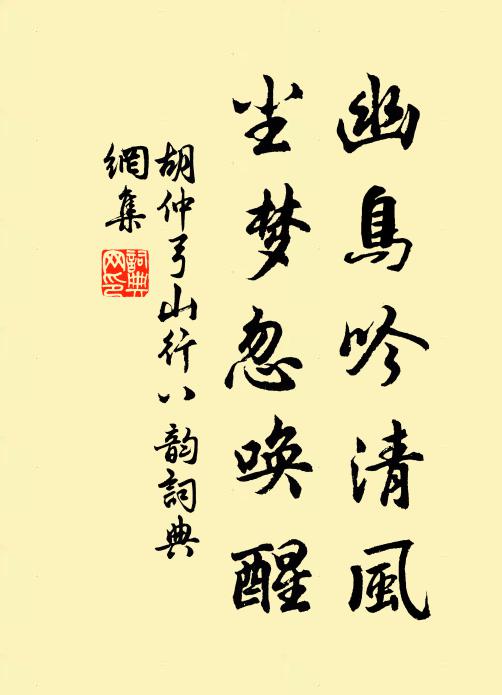 幽鳥吟清風
尘梦忽唤醒
胡仲弓山行八韵詞典
網集
詞典网印